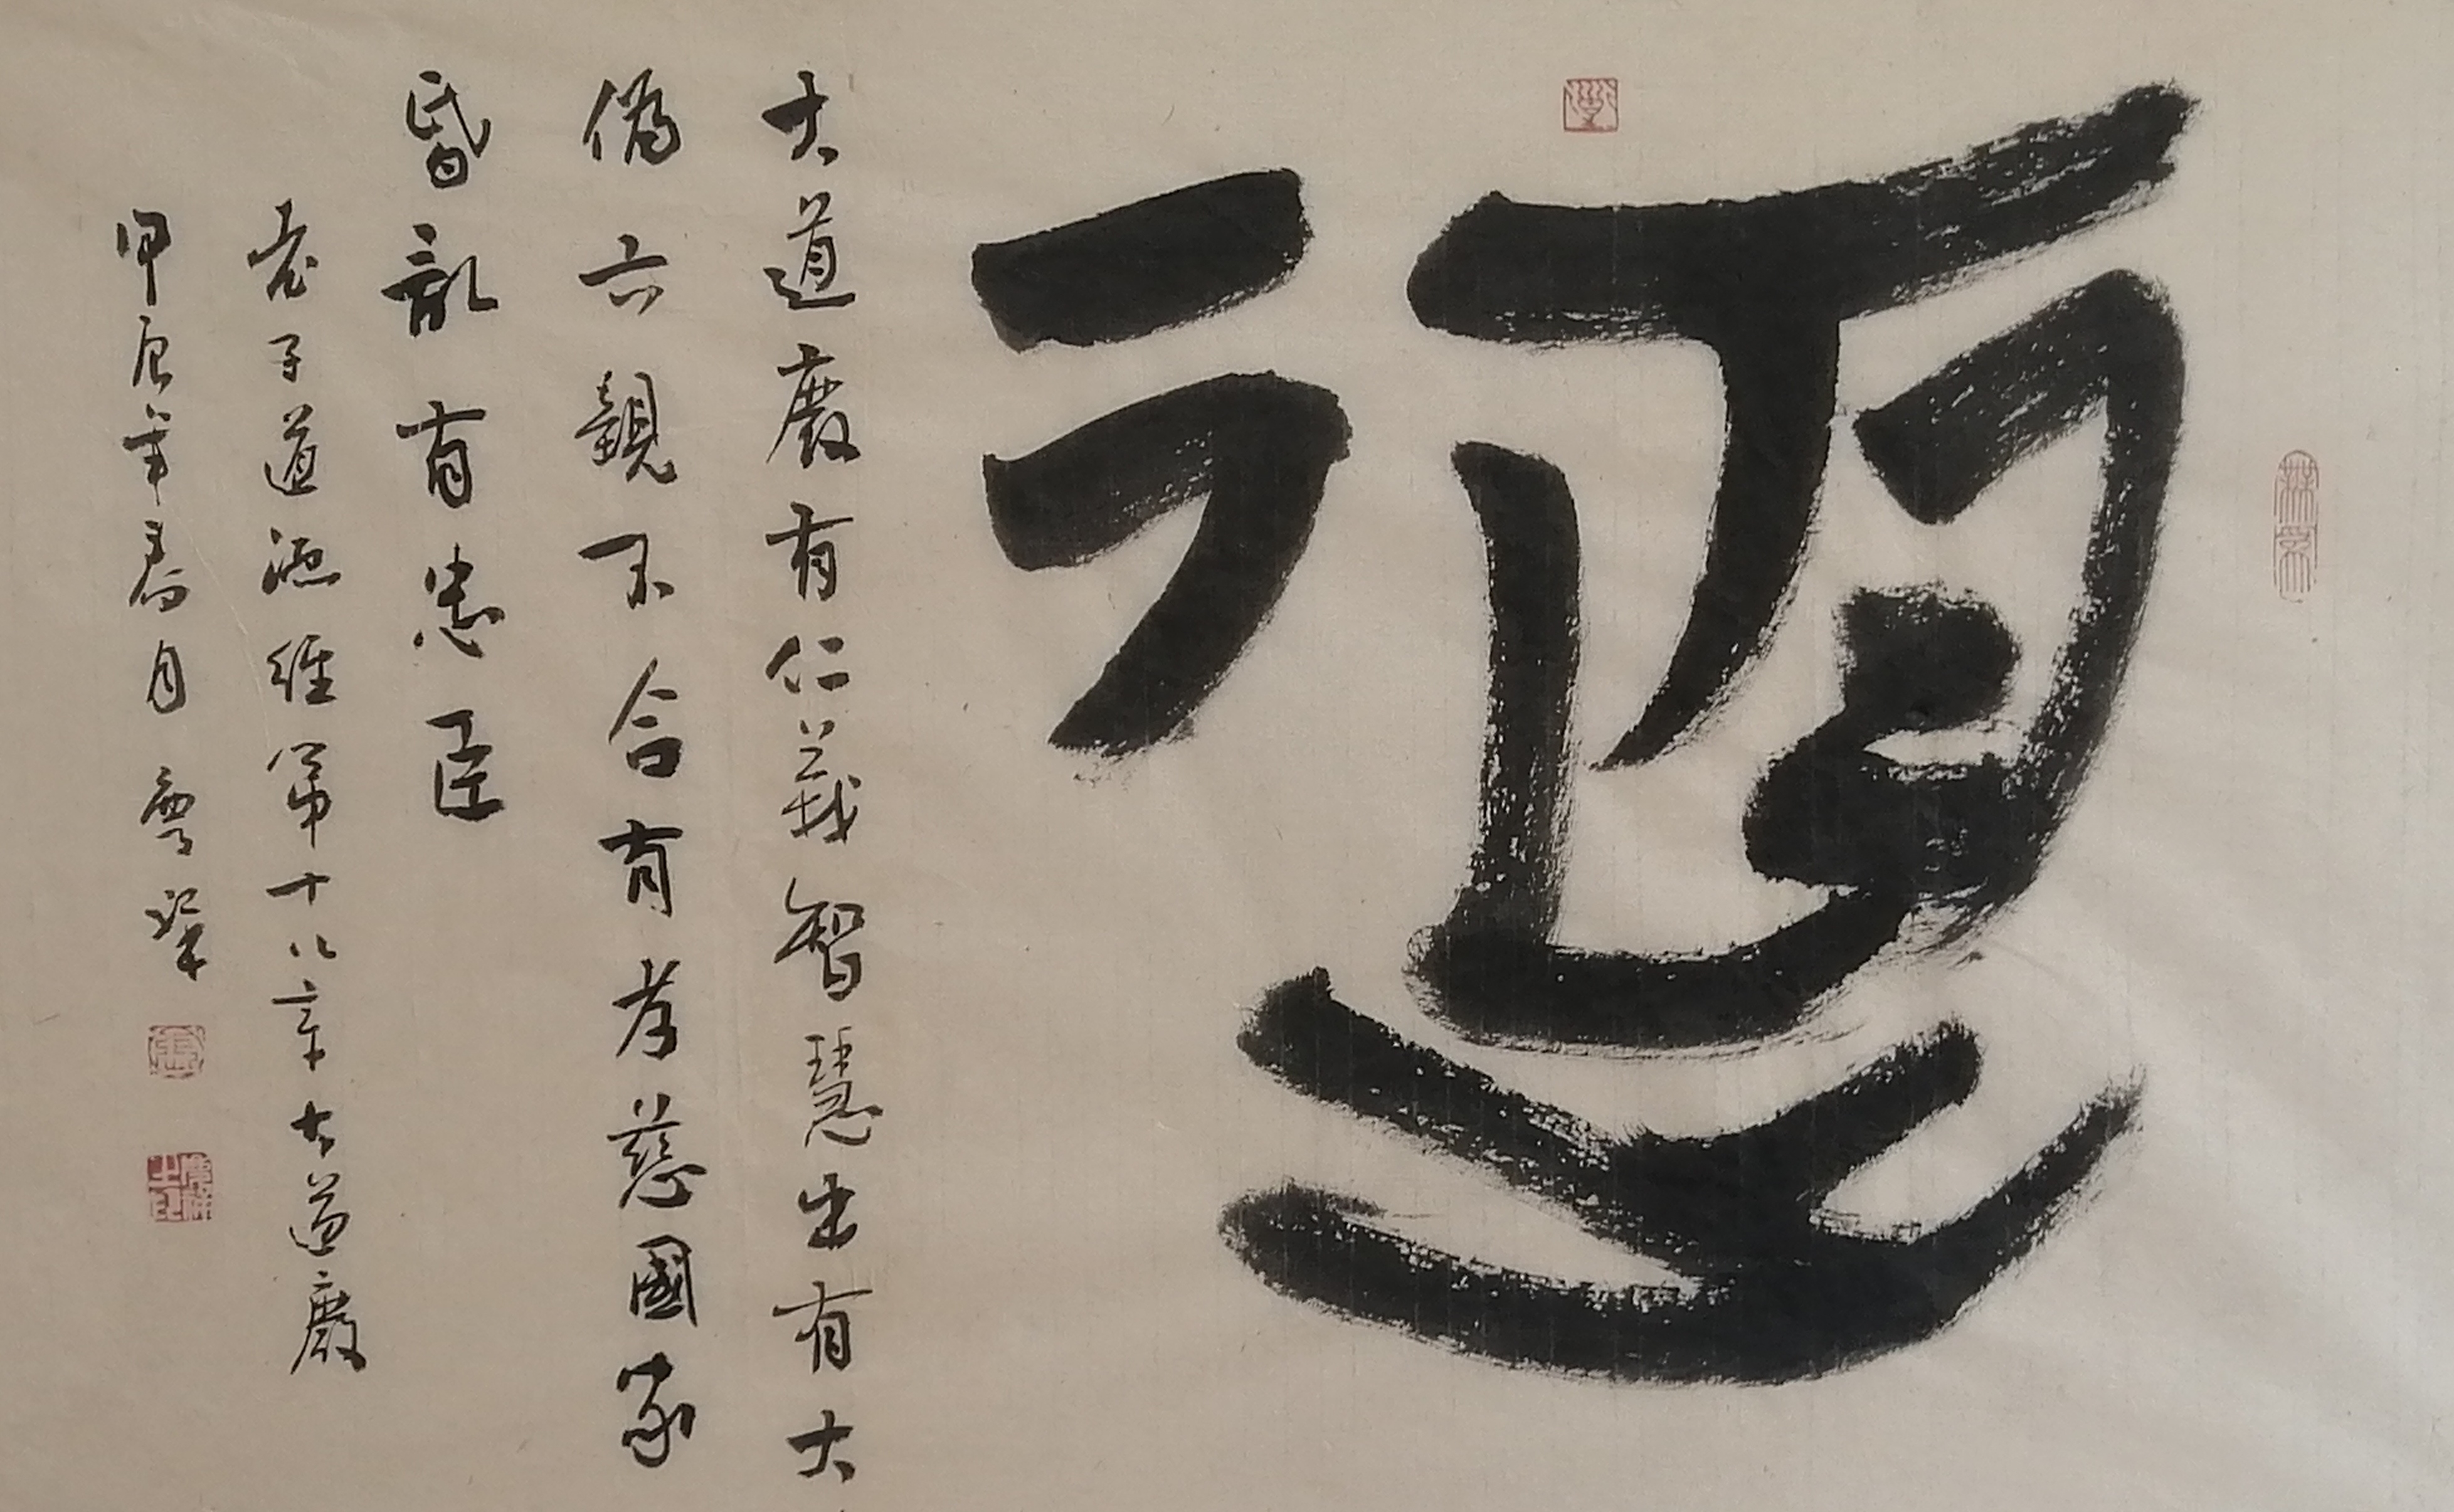 大道廢有仁義智慧出有大
偽六親不合有孝慈國家
昏亂有忠臣
老子道德經第十八章大道廢
甲辰年春月